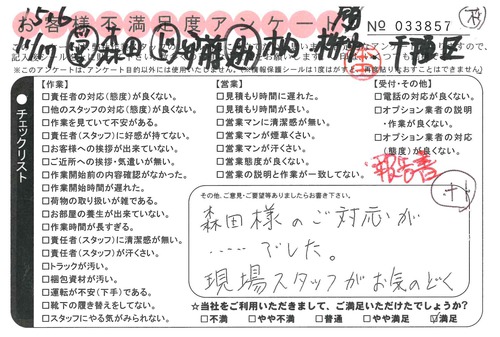 '15 6
お客様不満足度アンケート
No 033857
11/17 営 森田 千種区
※このアンケートは、アンケート目的以外には使用いたしません。
チェックリスト
【作業】
□責任者の対応(態度)が良くない。
□他のスタッフの対応(態度)が良くない。
□作業を見ていて不安がある。
□責任者(スタッフ)に好感が持てない。
□お客様への挨拶が出来ていない。
□ご近所への挨拶・気遣いが無い。
□作業開始前の内容確認がなかった。
□作業開始時間が遅れた。
□荷物の取り扱いが雑である。
□お部屋の養生が出来ていない。
□作業時間が長すぎる。
□責任者(スタッフ)に清潔感が無い。
□責任者(スタッフ)が汗くさい。
□トラックが汚い。
□梱包資材が汚い。
□運転が不安(下手)である。
□靴下の履き替えをしてない。
□スタッフにやる気がみられない。
【営業】
□見積もり時間に遅れた。
□見積もり時間が長い。
□営業マンに清潔感が無い。
□営業マンが煙草くさい。
□営業マンが汗くさい。
□営業態度が良くない。
□営業の説明と作業に相違がある。
【受付・その他】
□電話の対応が良くない。
□オプション業者の説明
・作業が良くない。
□オプション業者の対応
(態度)が良くない。
報告書
その他、ご意見・ご要望等ありましたらお書き下さい。
森田様のご対応が
……でした。
現場スタッフがお気のどく
☆当社をご利用いただきまして、ご満足いただけたでしょうか?
□不満 □やや不満 □普通 □やや満足 ☑満足